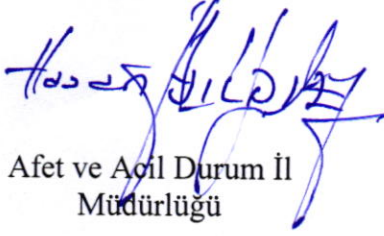 Hasan
Afet ve Acil Durum İl
Müdürlüğü